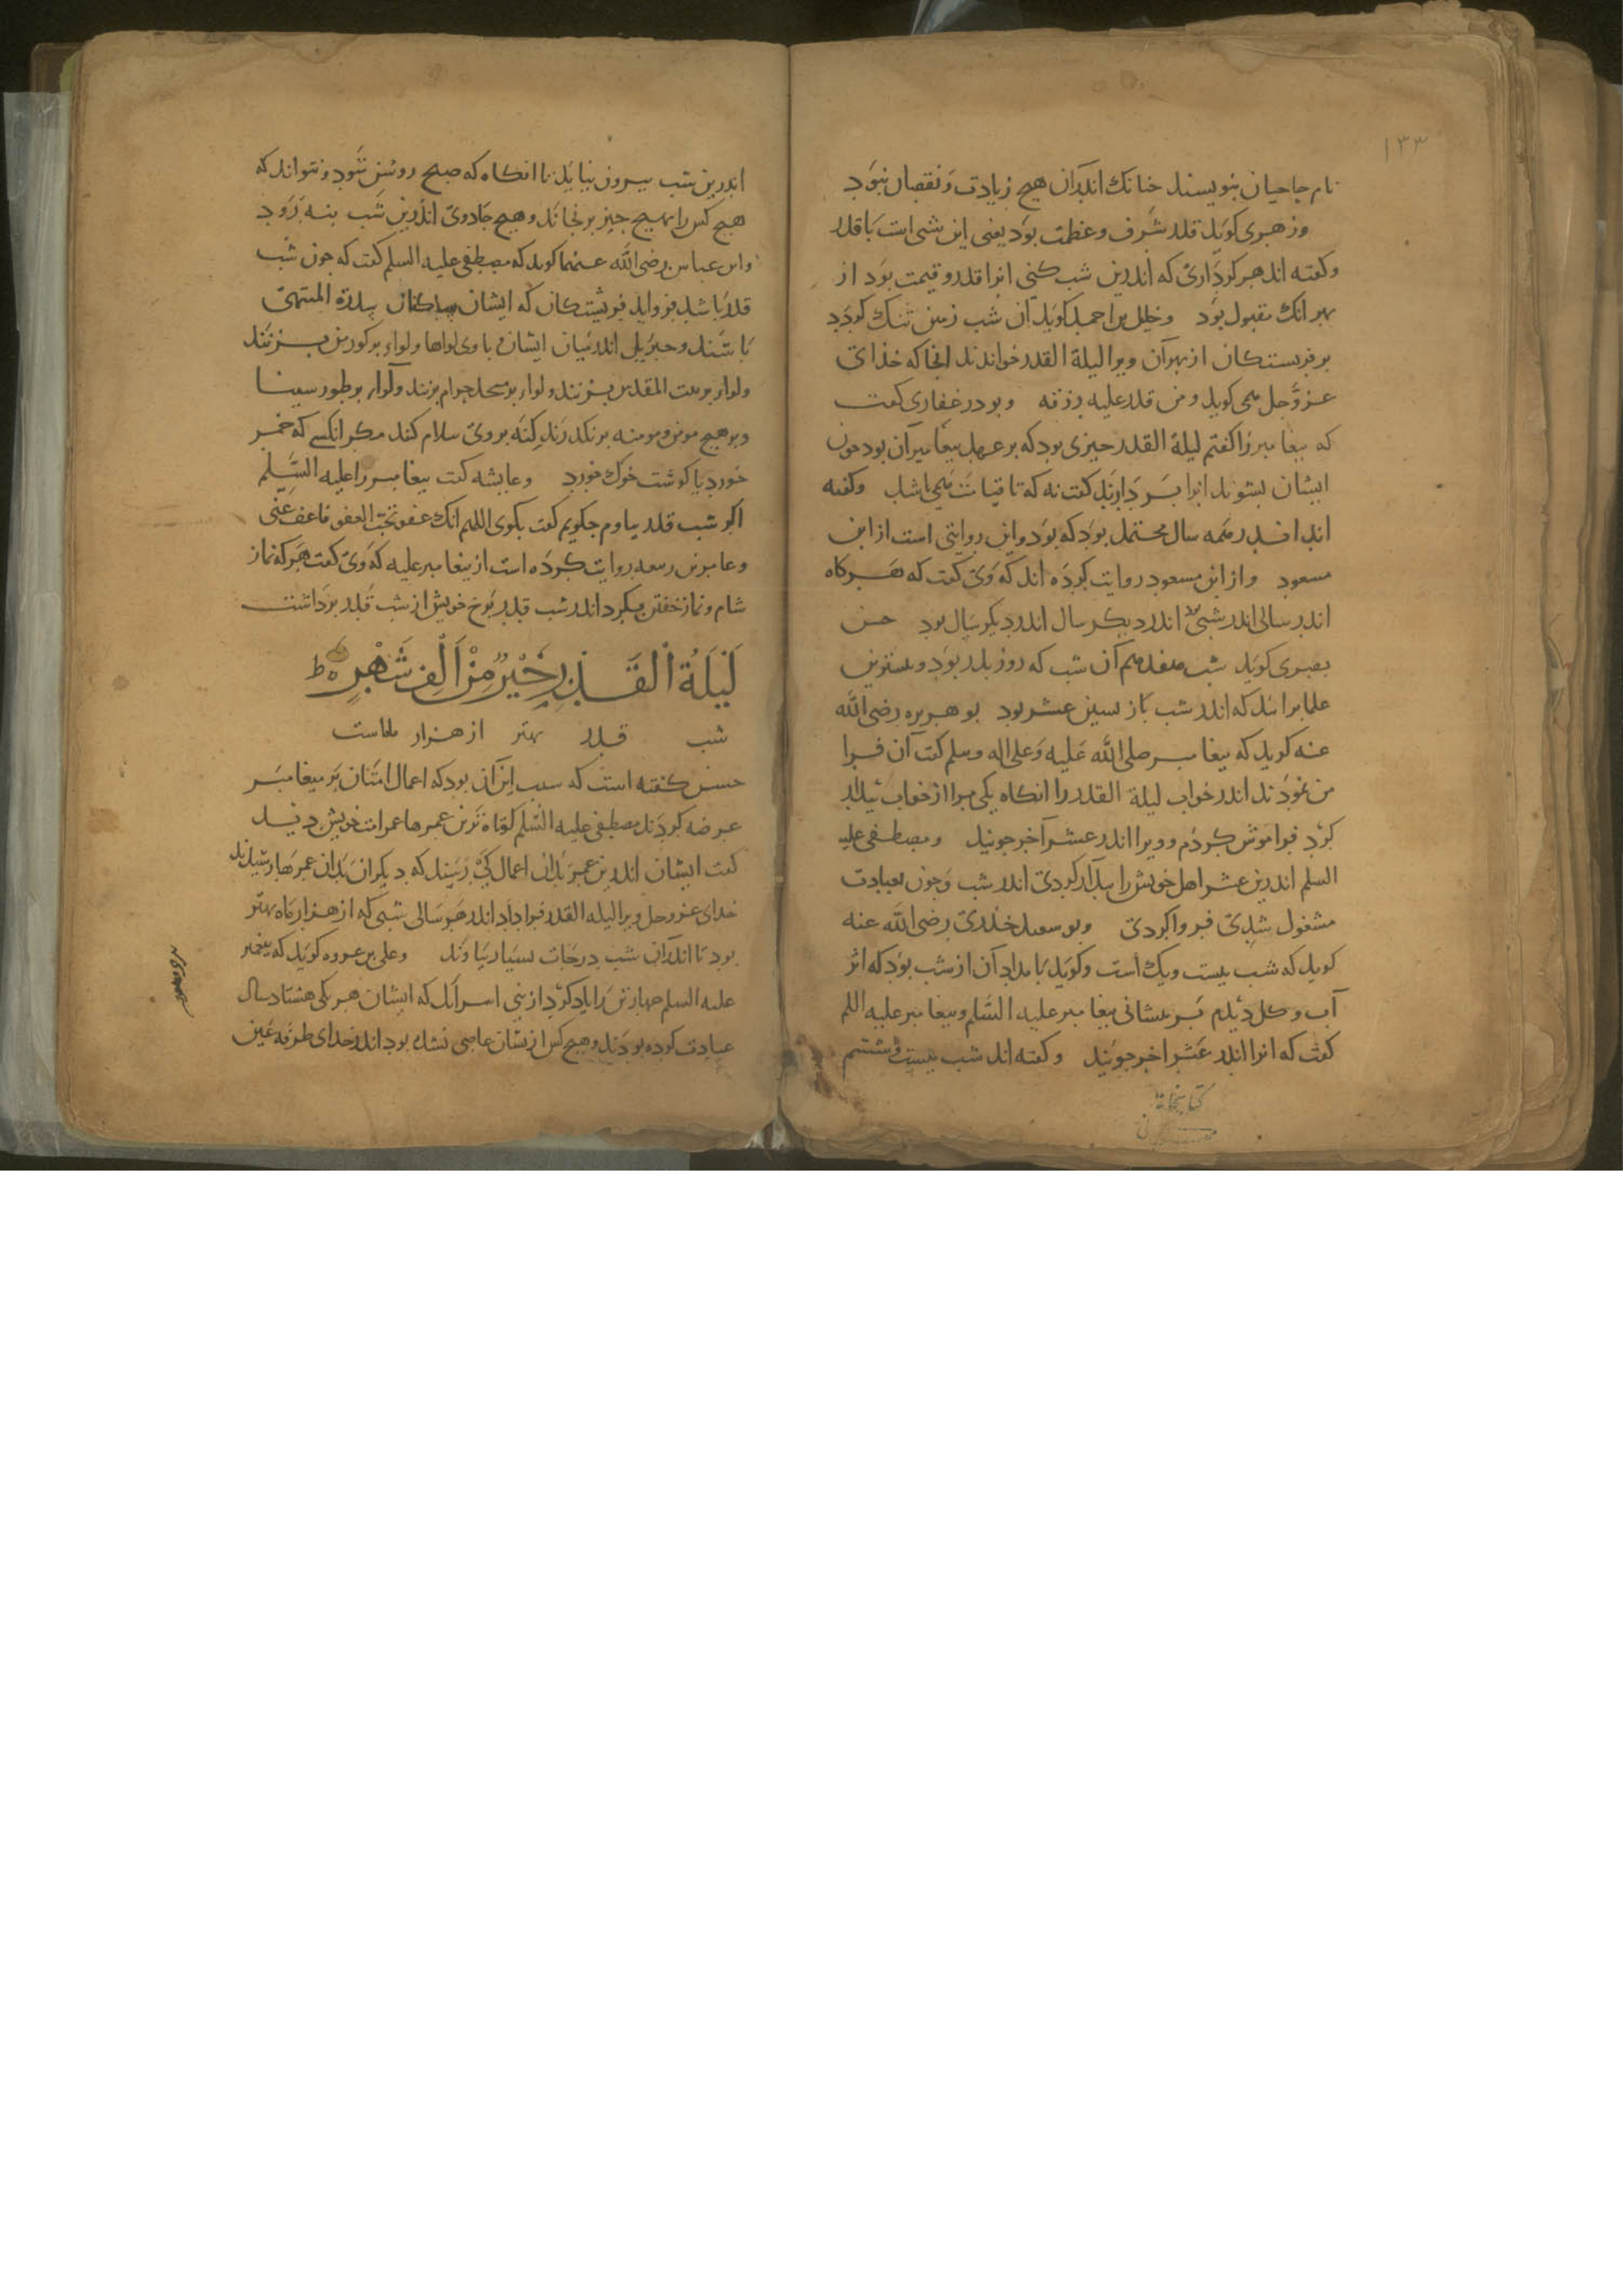 ۱۳۳
نام حاجیان بنویسند چنانک اندران هیچ زیادت و نقصان نبود
وزهری کوید قدر شرف وعظمت بود یعنی این شبی است با قدر
وکفته اند هر کرداری که اندرین شب کنی انرا قدر و قیمت بود از
بهر آنک مقبول بود وخلیل بن احمد کوید آن شب زمین تنک کردد
بر فریستکان از بهر آن ویرا لیلة القدر خواندند انجا که خذای
عزوجل می کوید ومن قدر علیه رزقه و بوذر غفاری کفت
که بیغامبر را کفتم لیلة القدر چیزی بود که بر عهد بیغامبران بود چون
ایشان بشوند انرا بردارند کفت نه که تا قیامت می باشد وکفته
اند اندر همه سال محتمل بود که بود واین روایتی است از ابن
مسعود واز ابن مسعود روایت کرده اند که وی کفت که هرکاه
اندر سالی اندر شبی اندر دیکر سال اندر دیکر سال بود حسن
بصری کوید شب هفدهم آن شب که روز بدر بود وبیشترین
علما برانند که اندر شب بازبسین عشر بود بو هریره رضی الله
عنه کوید که بیغامبر صلی الله علیه وعلی اله وسلم کفت آن فرا
من نمودند اندر خواب لیلة القدر را انکاه یکی مرا از خواب بیدار
کرد فراموش کردم و ویرا اندر عشر آخر جویید ومصطفی علیه
السلم اندرین عشر اهل خویش را بیدار کردی اندر شب وچون بعبادت
مشغول شدی فرواکردی وبو سعید خدری رضی الله عنه
کوید که شب بیست ویک است وکوید بامداد آن از شب بود که اثر
آب وکل دیدم بر بیشانی بیغامبر علیه السلم وبیغامبر علیه السلم
کفت که انرا اندر عشر اخر جویید وکفته اند شب بیست وششم
کتابخانه
اندرین شب بیرون نیاید تا انکاه که صبح روشن شود ونتواند که
هیچ کس را بهیچ چیز برنجاند وهیچ جادوی اندرین شب بنه رود
وابن عباس رضی الله عنهما کوید که مصطفی علیه السلم کفت که چون شب
قدر باشد فرواید فریشتکان که ایشان ساکنان سدرة المنتهی
باشند وجبریل اندر میان ایشان با وی لواها ولواء بر کور من بزنند
ولواء بر بیت المقدس بزنند ولواء بر مسجد حرام بزنند ولواء بر طور سینا
وبر هیچ مومن ومومنه برنکذرند که نه بر وی سلام کند مکر انکسی که خمر
خورد یا کوشت خوک خورد وعایشه کفت بیغامبر را علیه السلم
اکر شب قدر بیاوم چکویم کفت بکوی اللهم انک عفو تحب العفو فاعف عنی
وعامر بن ربیعه روایت کرده است از بیغامبر علیه که وی کفت هر که نماز
شام ونماز خفتن بکرد اندر شب قدر نرخ خویش از شب قدر برداشت
لَيْلَةُ الْقَدْرِ خَيْرٌ مِنْ أَلْفِ شَهْرٍ ط
شب قدر بهتر از هزار ماهست
حسن کفته است که سبب این آن بود که اعمال امتان بر بیغامبر
عرضه کردند مصطفی علیه السلم کوتاه ترین عمرها عمر امت خویش دید
کفت ایشان اندرین عمر بدان اعمال کی رسند که دیکران بدان عمرها رسیدند
خدای عزوجل ویرا لیلة القدر فرا داد اندر هر سالی شبی که از هزار ماه بهتر
بود تا اندران شب درجات بسیار بیاوند وعلی بن عروه کوید که بیغمبر
علیه السلم چهار تن را یاد کرد از بنی اسرائل که ایشان هر یکی هشتاد سال
عبادت کرده بودند وهیچ کس ازیشان عاصی نشده بود اندر خدای طرفة عین